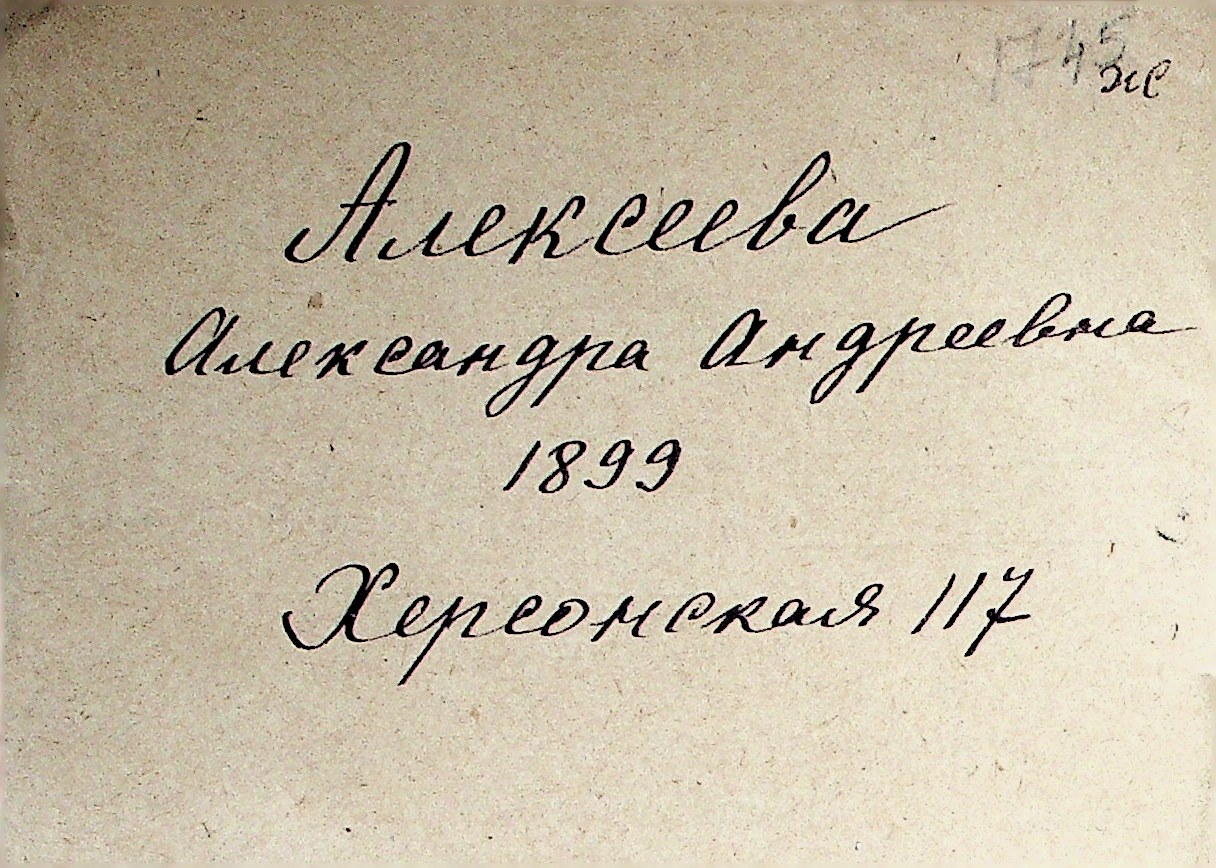 1745
ж
Алексеева
Александра Андреевна
1899
Херсонская 117